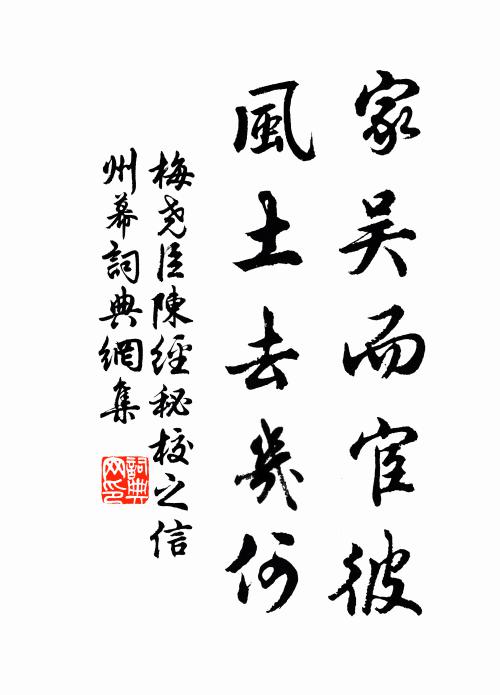 家吴而宦彼
風土去幾何
梅尧臣陳經秘校之信
州幕詞典網集
詞典網印